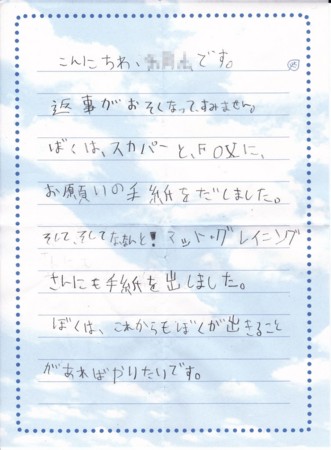 こんにちわ、です。
返事がおそくなって、すみません。
ぼくは、スカパーと、FOXに、
お願いの手紙をだしました。
そして、そしてななんと!マット・グレイニング
さんにも手紙を出しました。
ぼくは、これからもぼくが出きること
があればやりたいです。